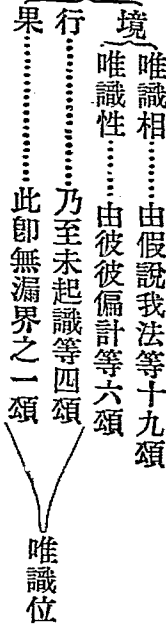 境
唯識相………由假說我法等十九頌
唯識性………由彼彼徧計等六頌
行………乃至未起識等四頌
果………此卽無漏界之一頌
唯識位